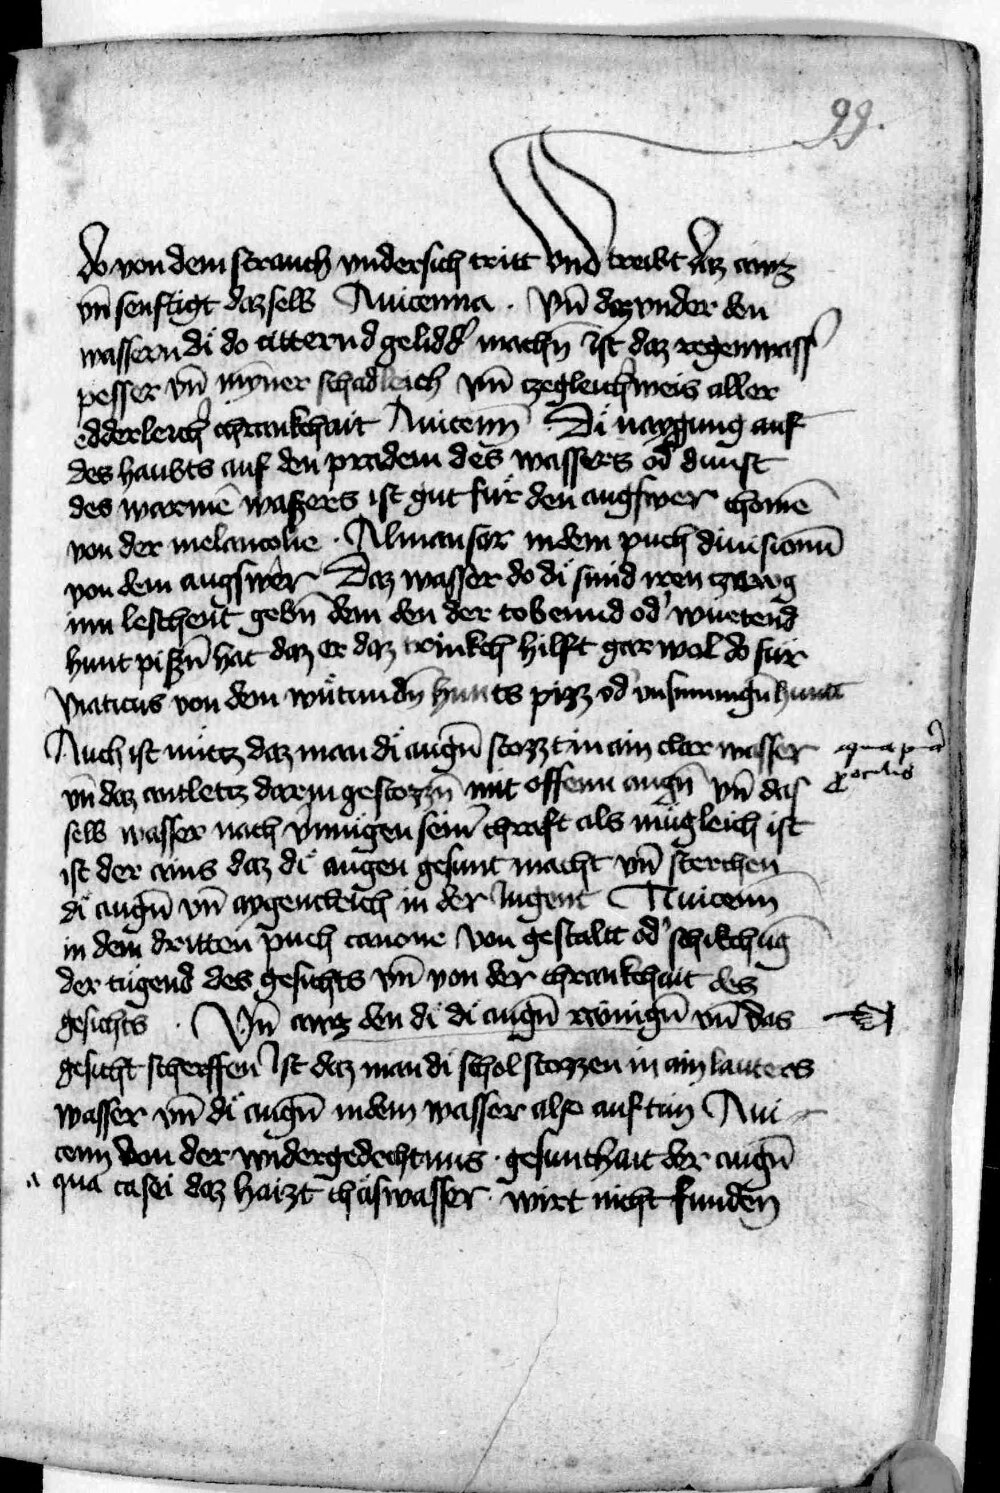 99.
do von dem strauch vndersich tritt vnd treibt daz
vn̄ senftigt dazselb Auicenna . Vn̄ daz vnder den
wassern di do citternd gelidd' mach̄n ist daz regenwass'
pesser vn̄ myner schadleich vnn czegleich'weis aller
edderleich' chrankchait Auicenn̄ Di naygung auf
des haubts auf den pradem des wassers od' dunst
des warmē waszers ist gut für den augswer chomē
von der melancolie . Almansor indem puch diuisionū
von dem augswer Daz wasser do di smid iren
inn leschent gebn̄ dem den der tobennd od' wuetend
hunt piszn̄ hat daz er daz trinkch hilft gar wol do für
Viaticus von dem wütundn̄ hunts pizz od' vnsinnign̄
Auch ist nütz daz man di augn̄ stozz in ain clar wasser
vn̄ daz antletz darin gestozzn̄ mit offenn augn̄ vn̄ das
selb wasser nach vnnügen seim chraft als mügleich ist
ist der ains daz di augen gesunt macht vn̄ sterchen
di augn̄ vn̄ aygentleich in der Jugent Auicenn̄
in dem dritten puch canone von gestalt od' schikchūg
der tugend des gesichts vn̄ von der chrankchait des
gesichts . Vn̄ aintz den di di augn̄ rainign̄ vn̄ das
gesicht scherffen Ist daz man di schol stozzen in ain lauters
wasser vn̄ di augn̄ indem wasser also auftun Aui
cenn von der widergedechtnus . gesunthait der augn̄
a qua casei daz haizt chäswasser . wirt nicht funden